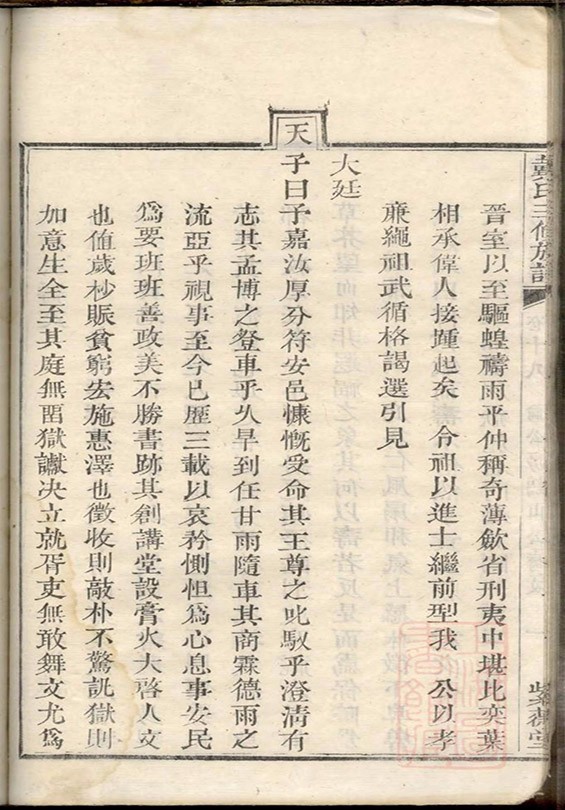 戴氏三修族譜
卷十八
紫荷堂
晉室以至驅蝗禱雨平仲稱奇薄歛省刑夷中堪比奕葉
相承偉人接踵起矣 令祖以進士繼前型我 公以孝
亷繩祖武循格謁選引見
大廷
天
子曰予嘉汝厚分符安邑慷慨受命其王尊之叱馭乎澄清有
志其孟博之登車乎久旱到任甘雨隨車其商霖德雨之
流亞乎視事至今已歷三載以哀矜惻怛爲心息事安民
爲要班班善政美不勝書跡其創講堂設膏火大啓人文
也值歲杪賑貧窮宏施惠澤也徵收則敲朴不驚訛獄則
如意生全至其庭無畱獄讞决立就胥吏無敢舞文尤爲